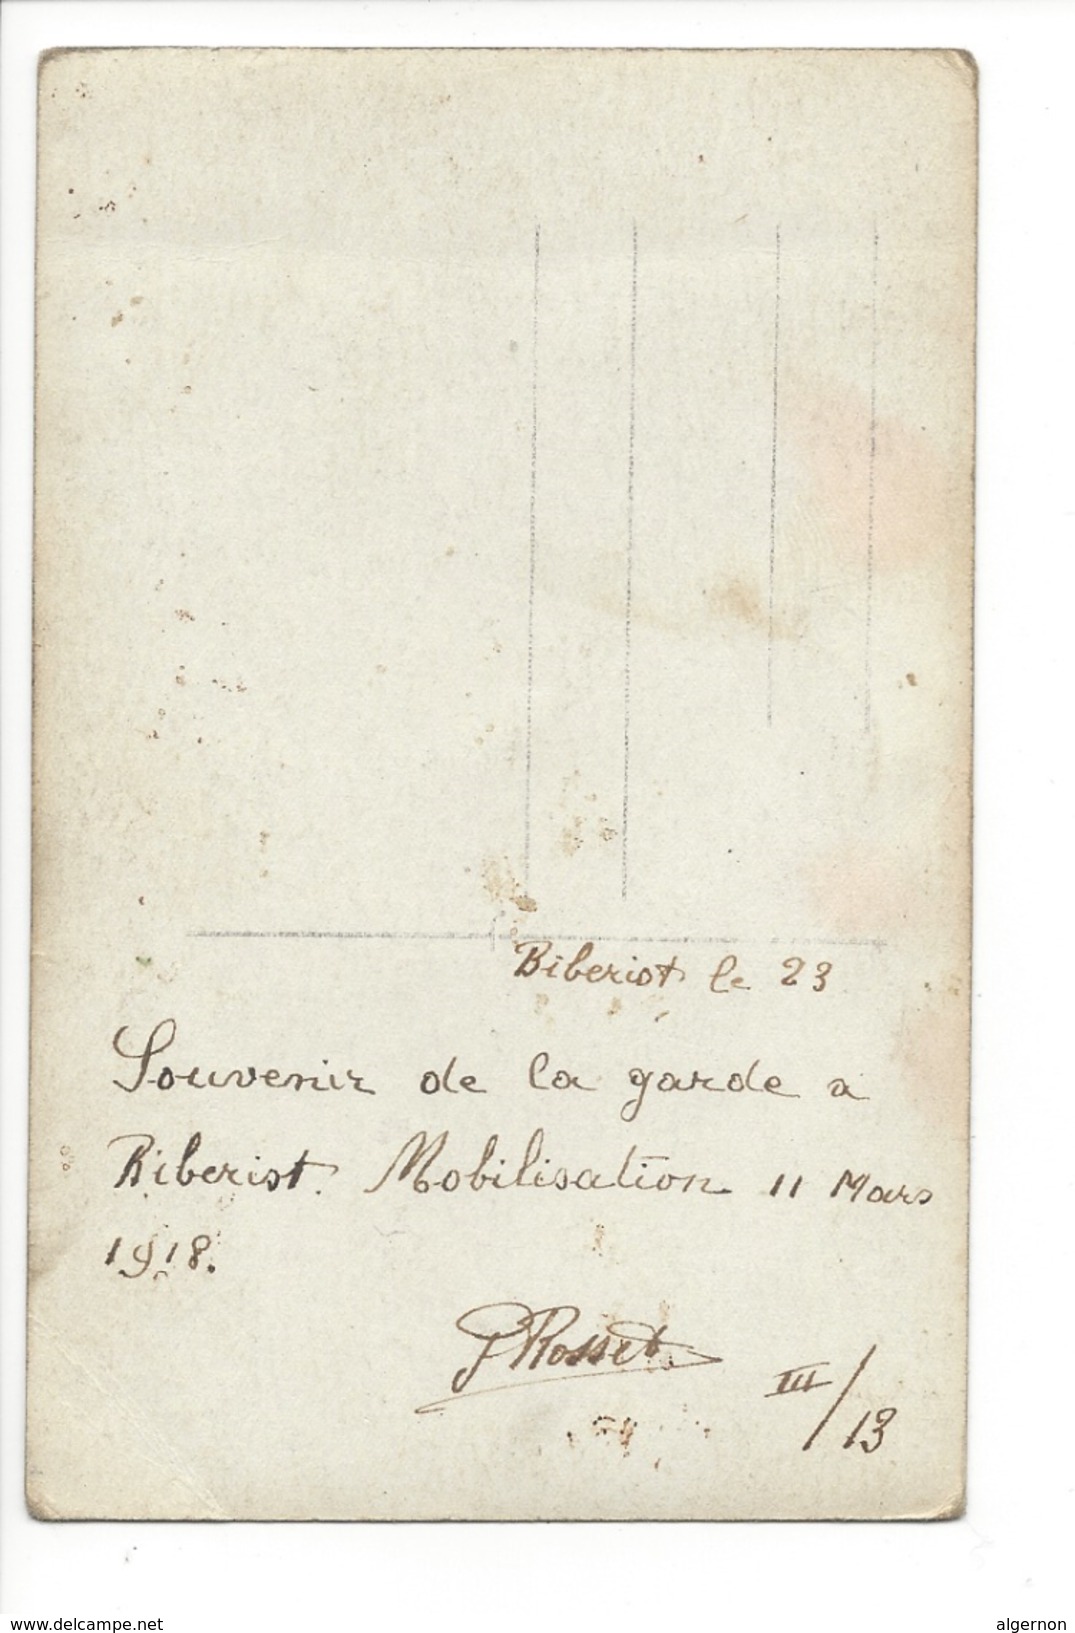 Biberist le 23
Souvenir de la garde a
Biberist. Mobilisation 11 Mars
1918.
P Rosset
III/13
www.delcampe.net
algernon